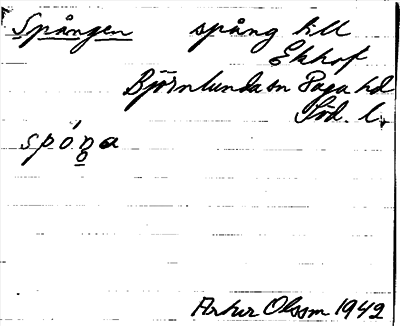 Spången spång till
Ekhof
Björnlunda sn Daga hd
Söd. l.
spó̀n̥a
Artur Olsson 1942